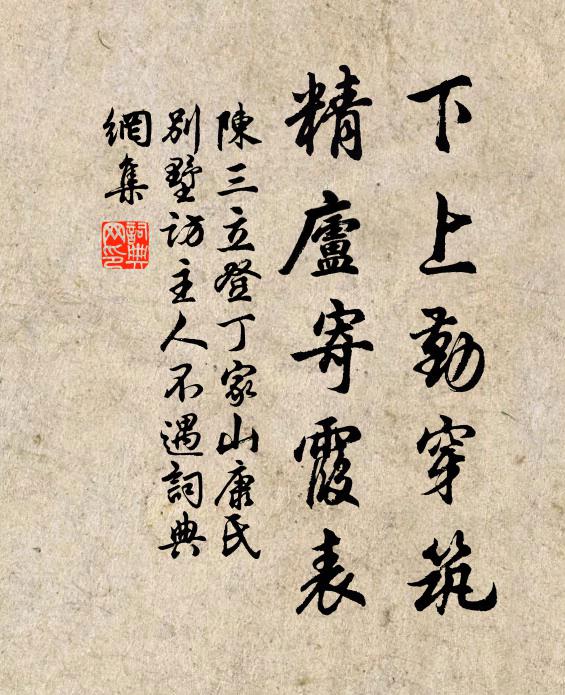 下上勤穿筑
精廬寄霞表
陳三立登丁家山康氏
別墅訪主人不遇詞典
網集
詞典
网印